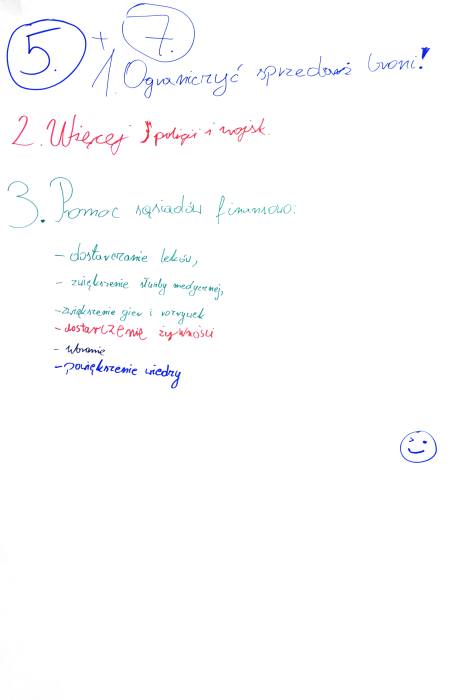 5. + 7.
1. Ograniczyć sprzedaż broni!
2. Więcej policji i wojsk.
3. Pomoc sąsiadów finansowo:
- dostarczanie leków,
- zwiększenie służby medycznej,
- zwiększenie gier i rozrywek
- dostarczenie żywności
- ubranie
- powiększenie wiedzy